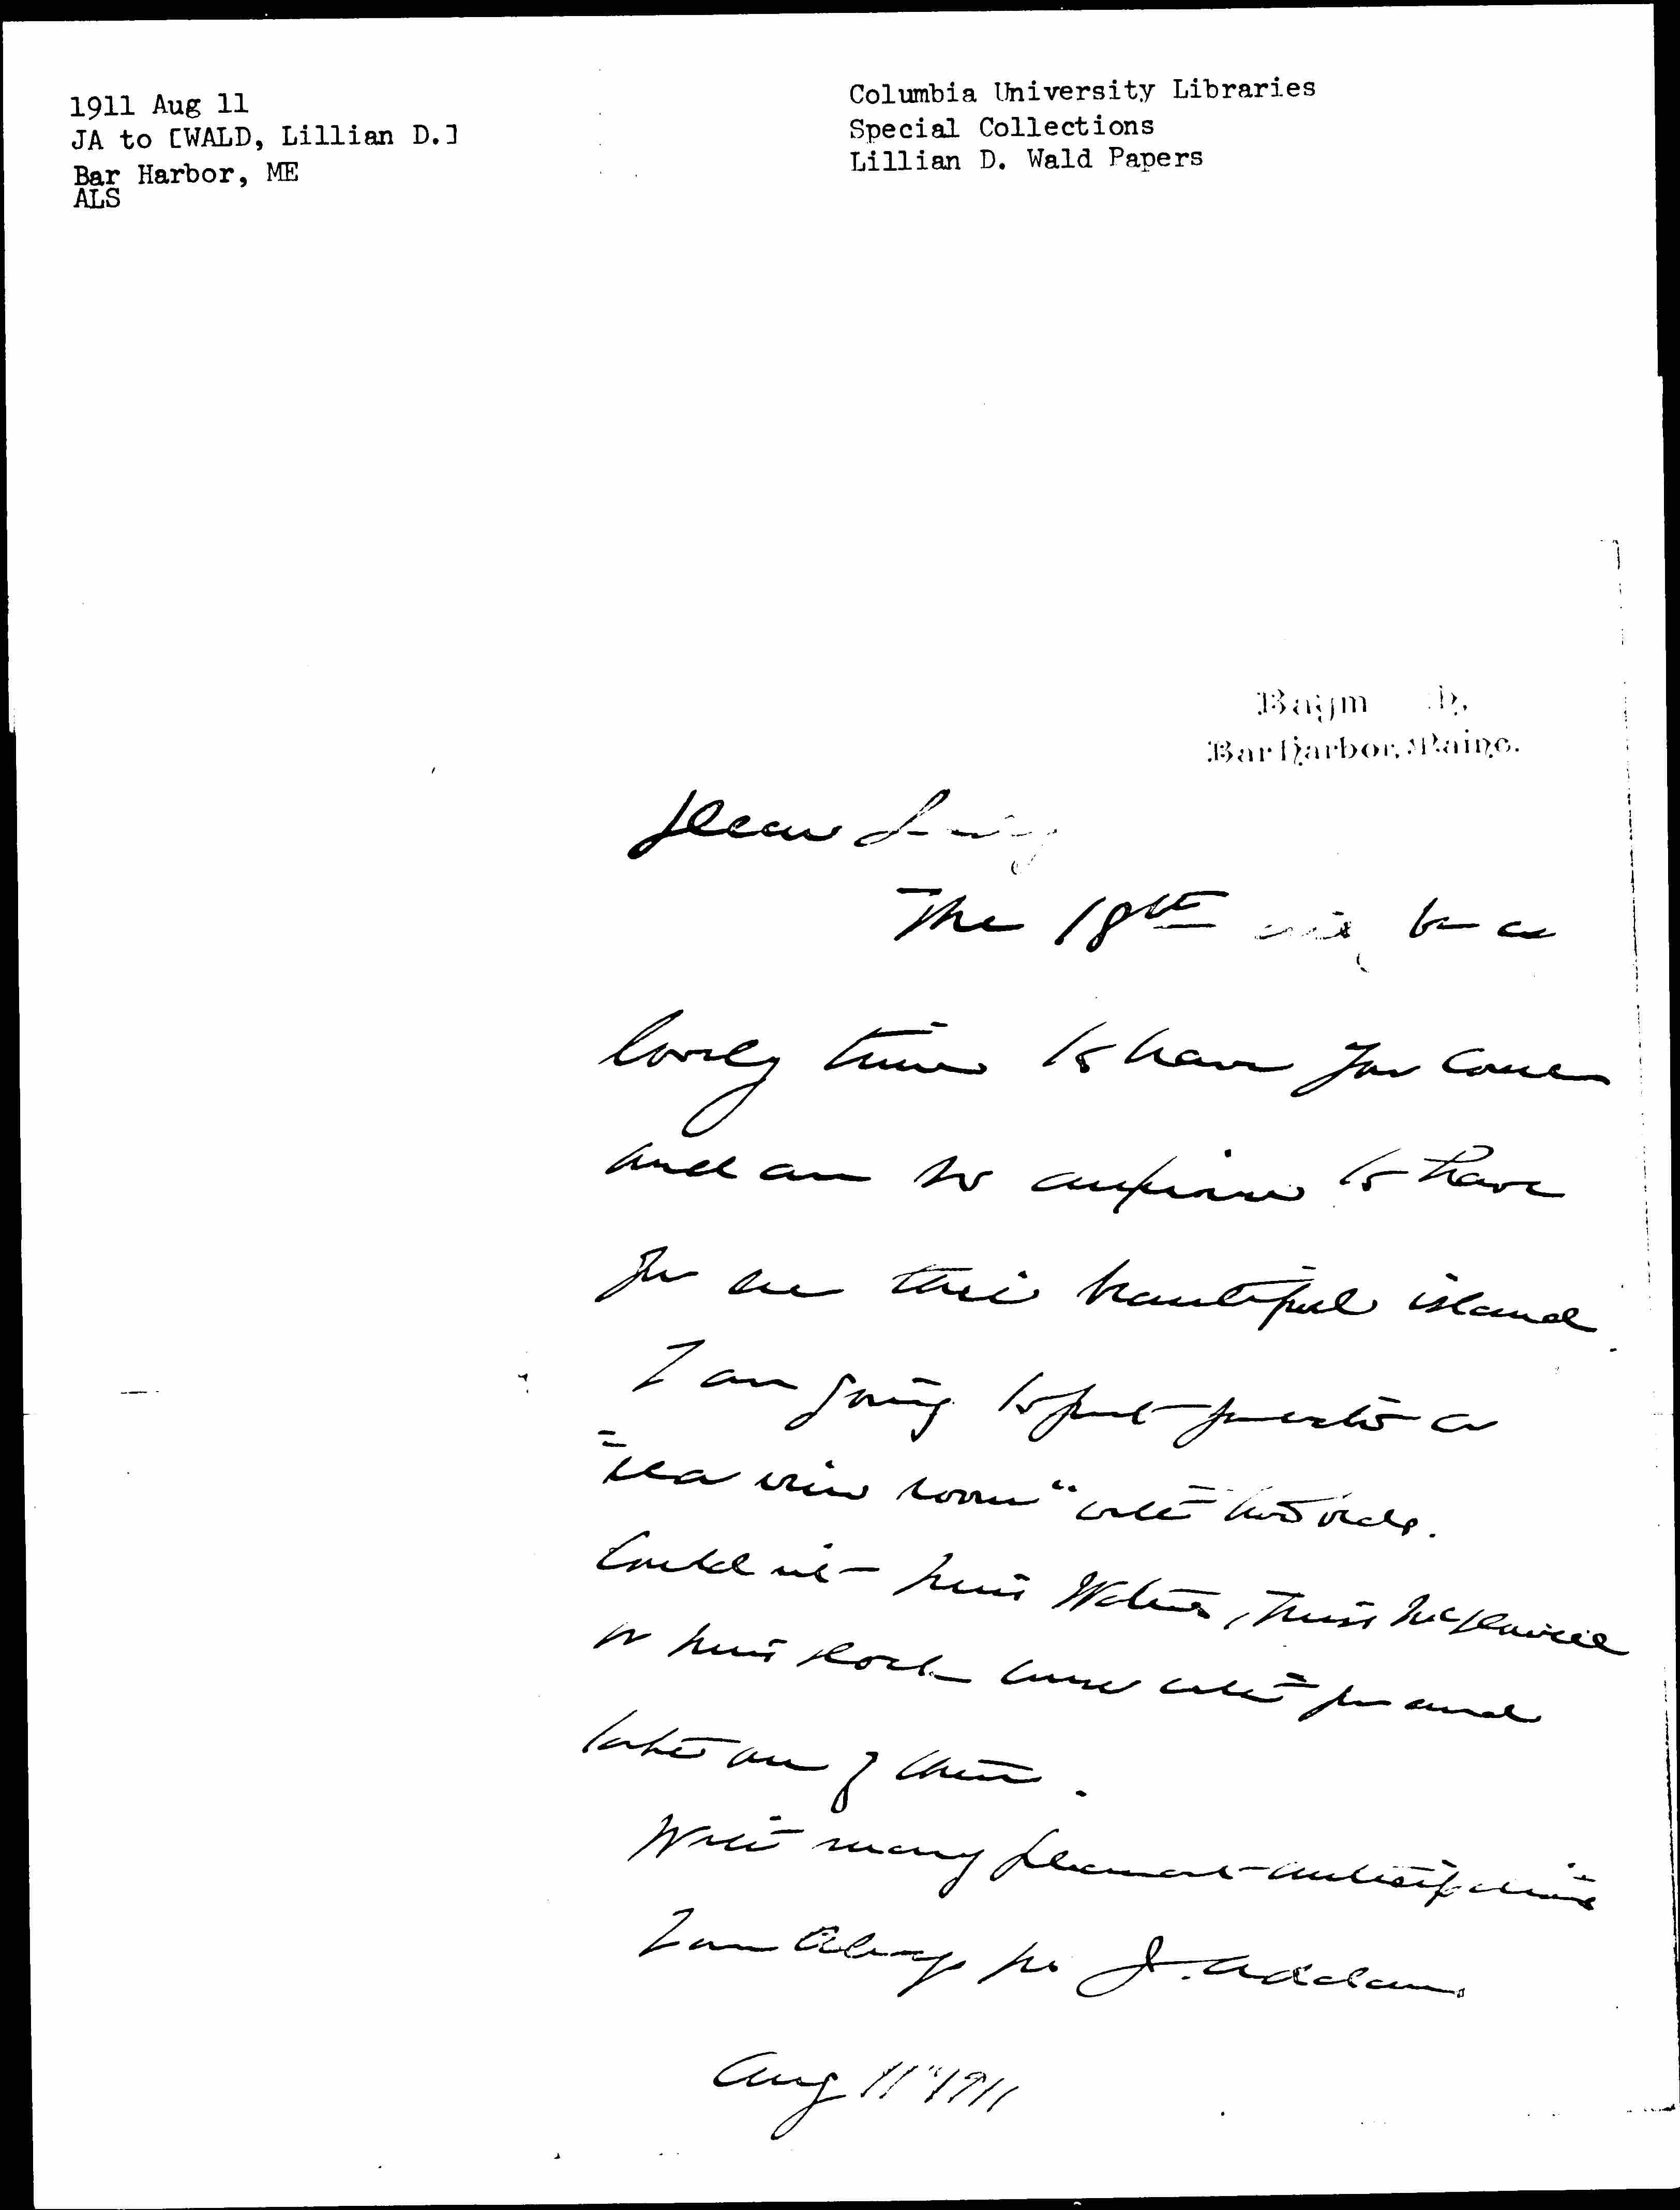 1911 Aug 11
JA to [WALD, Lillian D.]
Bar Harbor, ME
ALS
Columbia University Libraries
Special Collections
Lillian D. Wald Papers
Baym h,
Bar Harbor, Maine.
Dear Lady
The 18th will be a
lovely time to have you come
and am so anxious to have
you see this beautiful island.
I am going to put you into a
"sea view room" with two beds.
Could not Miss Waters, Miss McDowell
or Miss come with you and
take one of them.
With many pleasant anticipations
I am always yrs J. Addams
Aug 11" 1911